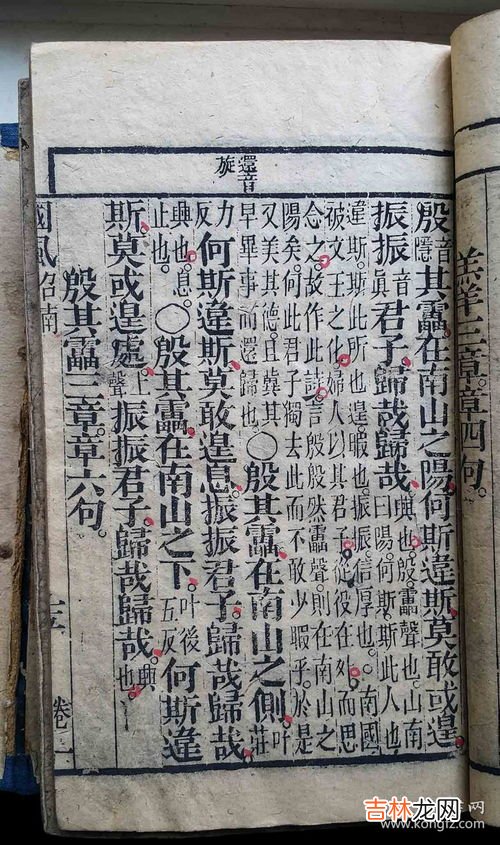 羔羊三章。章四句。
還音
旋
殷音隱其靁。在南山之陽。何斯違斯。莫敢或遑。
振振音真君子。歸哉歸哉。興也。殷靁聲也。山南
曰陽。何斯。斯此人也。
違斯。斯此所也。遑。暇也。振振。信厚也。○南國
被文王之化。婦人以其君子。從役在外。而思
念之。故作此詩。言殷殷然靁聲。則在南山之
陽矣。何此君子獨去此。而不敢少暇乎。於是
又美其德。且冀其
早畢事而還歸也。
○殷其靁。在南山之側。叶莊
力反何斯違斯。莫敢遑息。振振君子。歸哉歸哉
興也。息。
止也。
○殷其靁。在南山之下。叶後五反何斯違
斯。莫或遑處。上聲振振君子。歸哉歸哉。興也
殷其靁三章。章六句。
國風 召南
卷之一
吉林龙网
www.kongfz.com